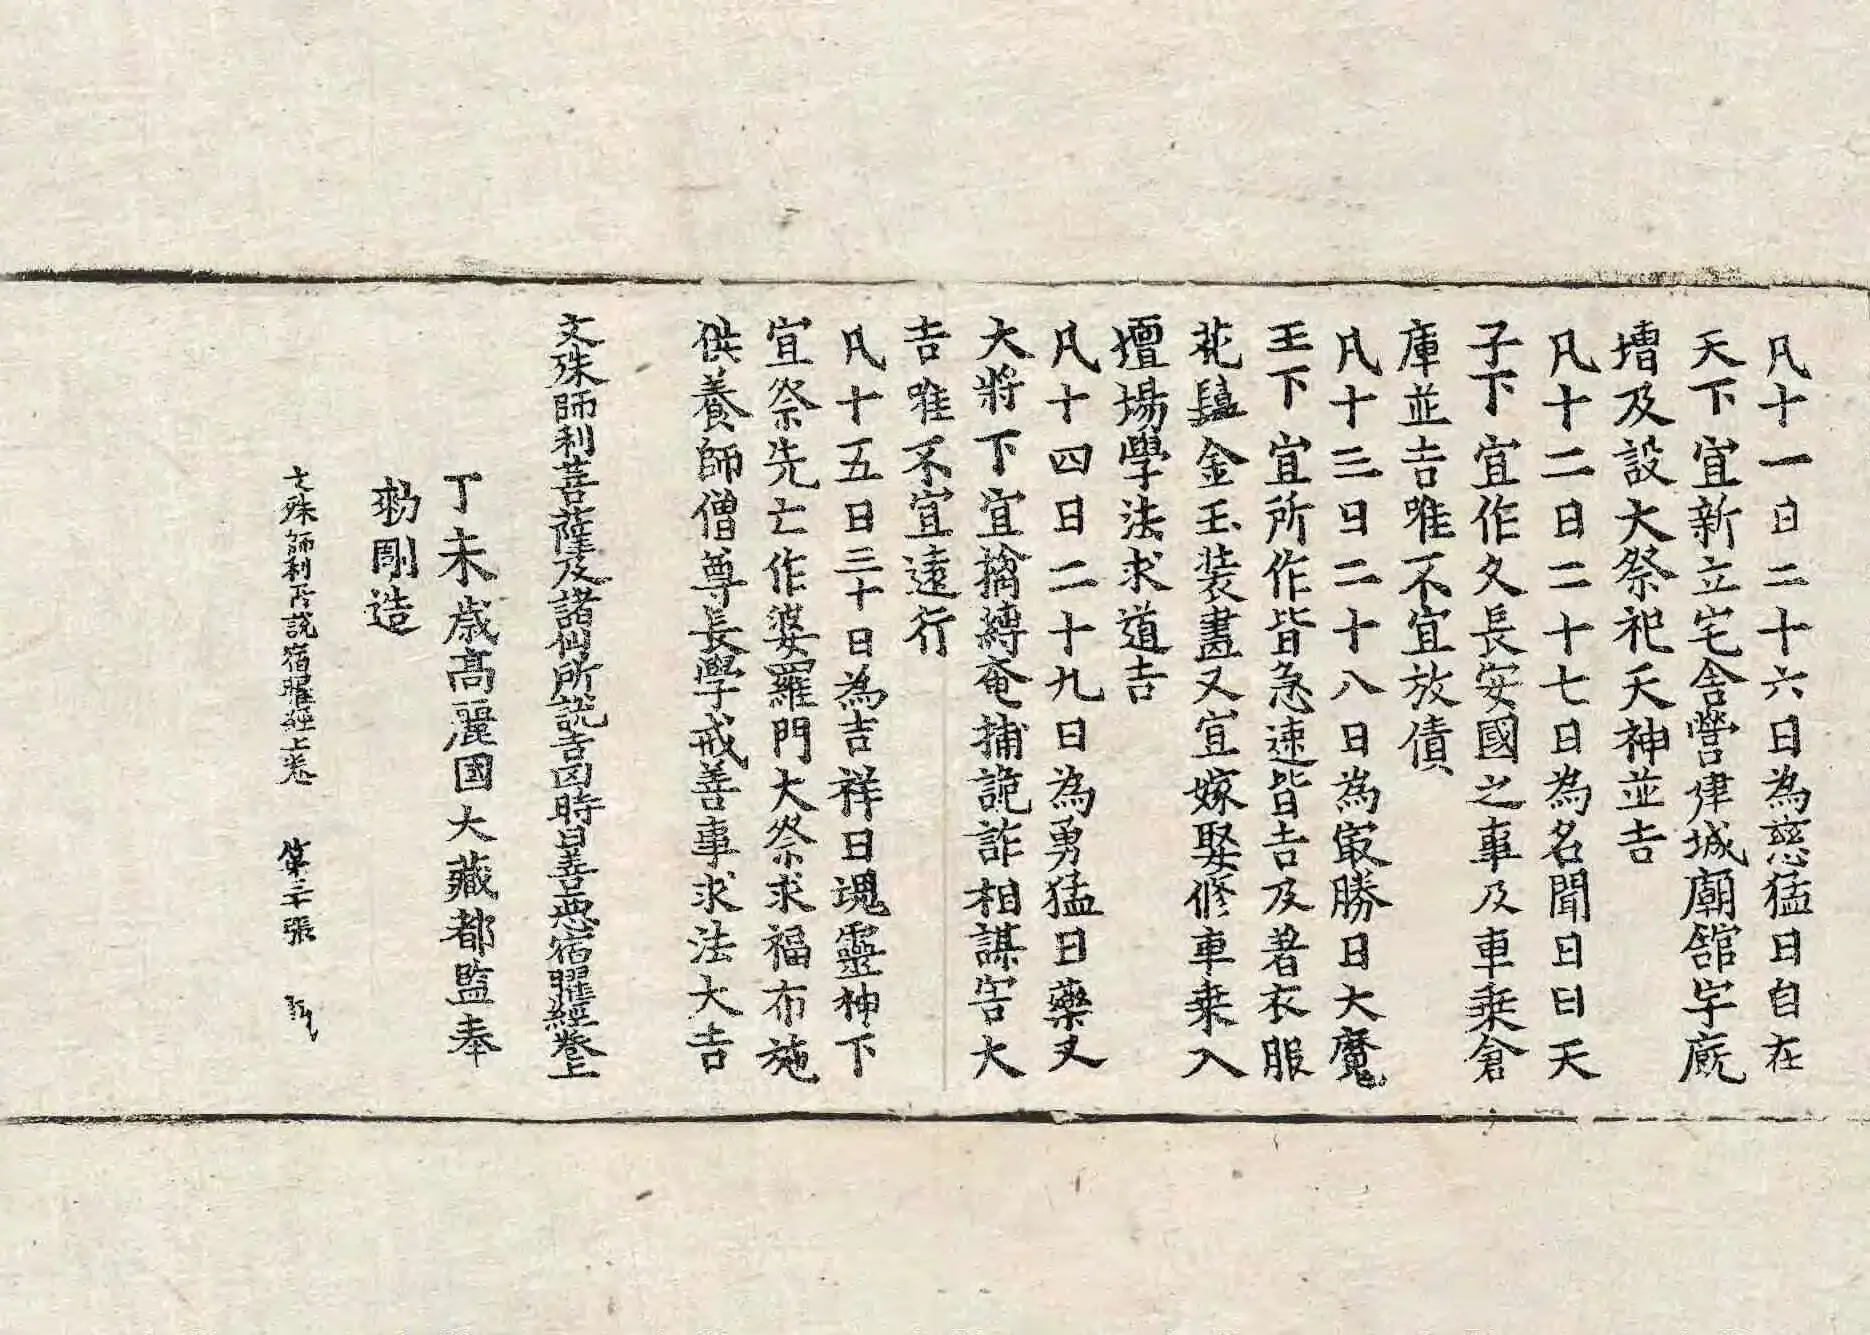 凡十一日二十六日為慈猛日自在
天下宜新立宅舍營建城廟舘宇廐
壿及設大祭祀天神並吉
凡十二日二十七日為名聞日日天
子下宜作久長安國之事及車乗倉
庫並吉唯不宜放債
凡十三日二十八日為㝡勝日大魔
王下宜所作皆急速皆吉及著衣服
花鬘金玉装畫又宜嫁娶修車乗入
壇場學法求道吉
凡十四日二十九日為勇猛日藥叉
大將下宜擒縛奄捕詭詐相謀害大
吉唯不宜逺行
凡十五日三十日為吉祥日魂靈神下
宜祭先亡作婆羅門大祭求福布施
供養師僧尊長學戒善事求法大吉
文殊師利菩薩及諸仙所説吉凶時日善惡宿曜經卷上
丁未歳高麗國大藏都監奉
勑彫造
文殊師利所說宿曜經上卷 第三十張